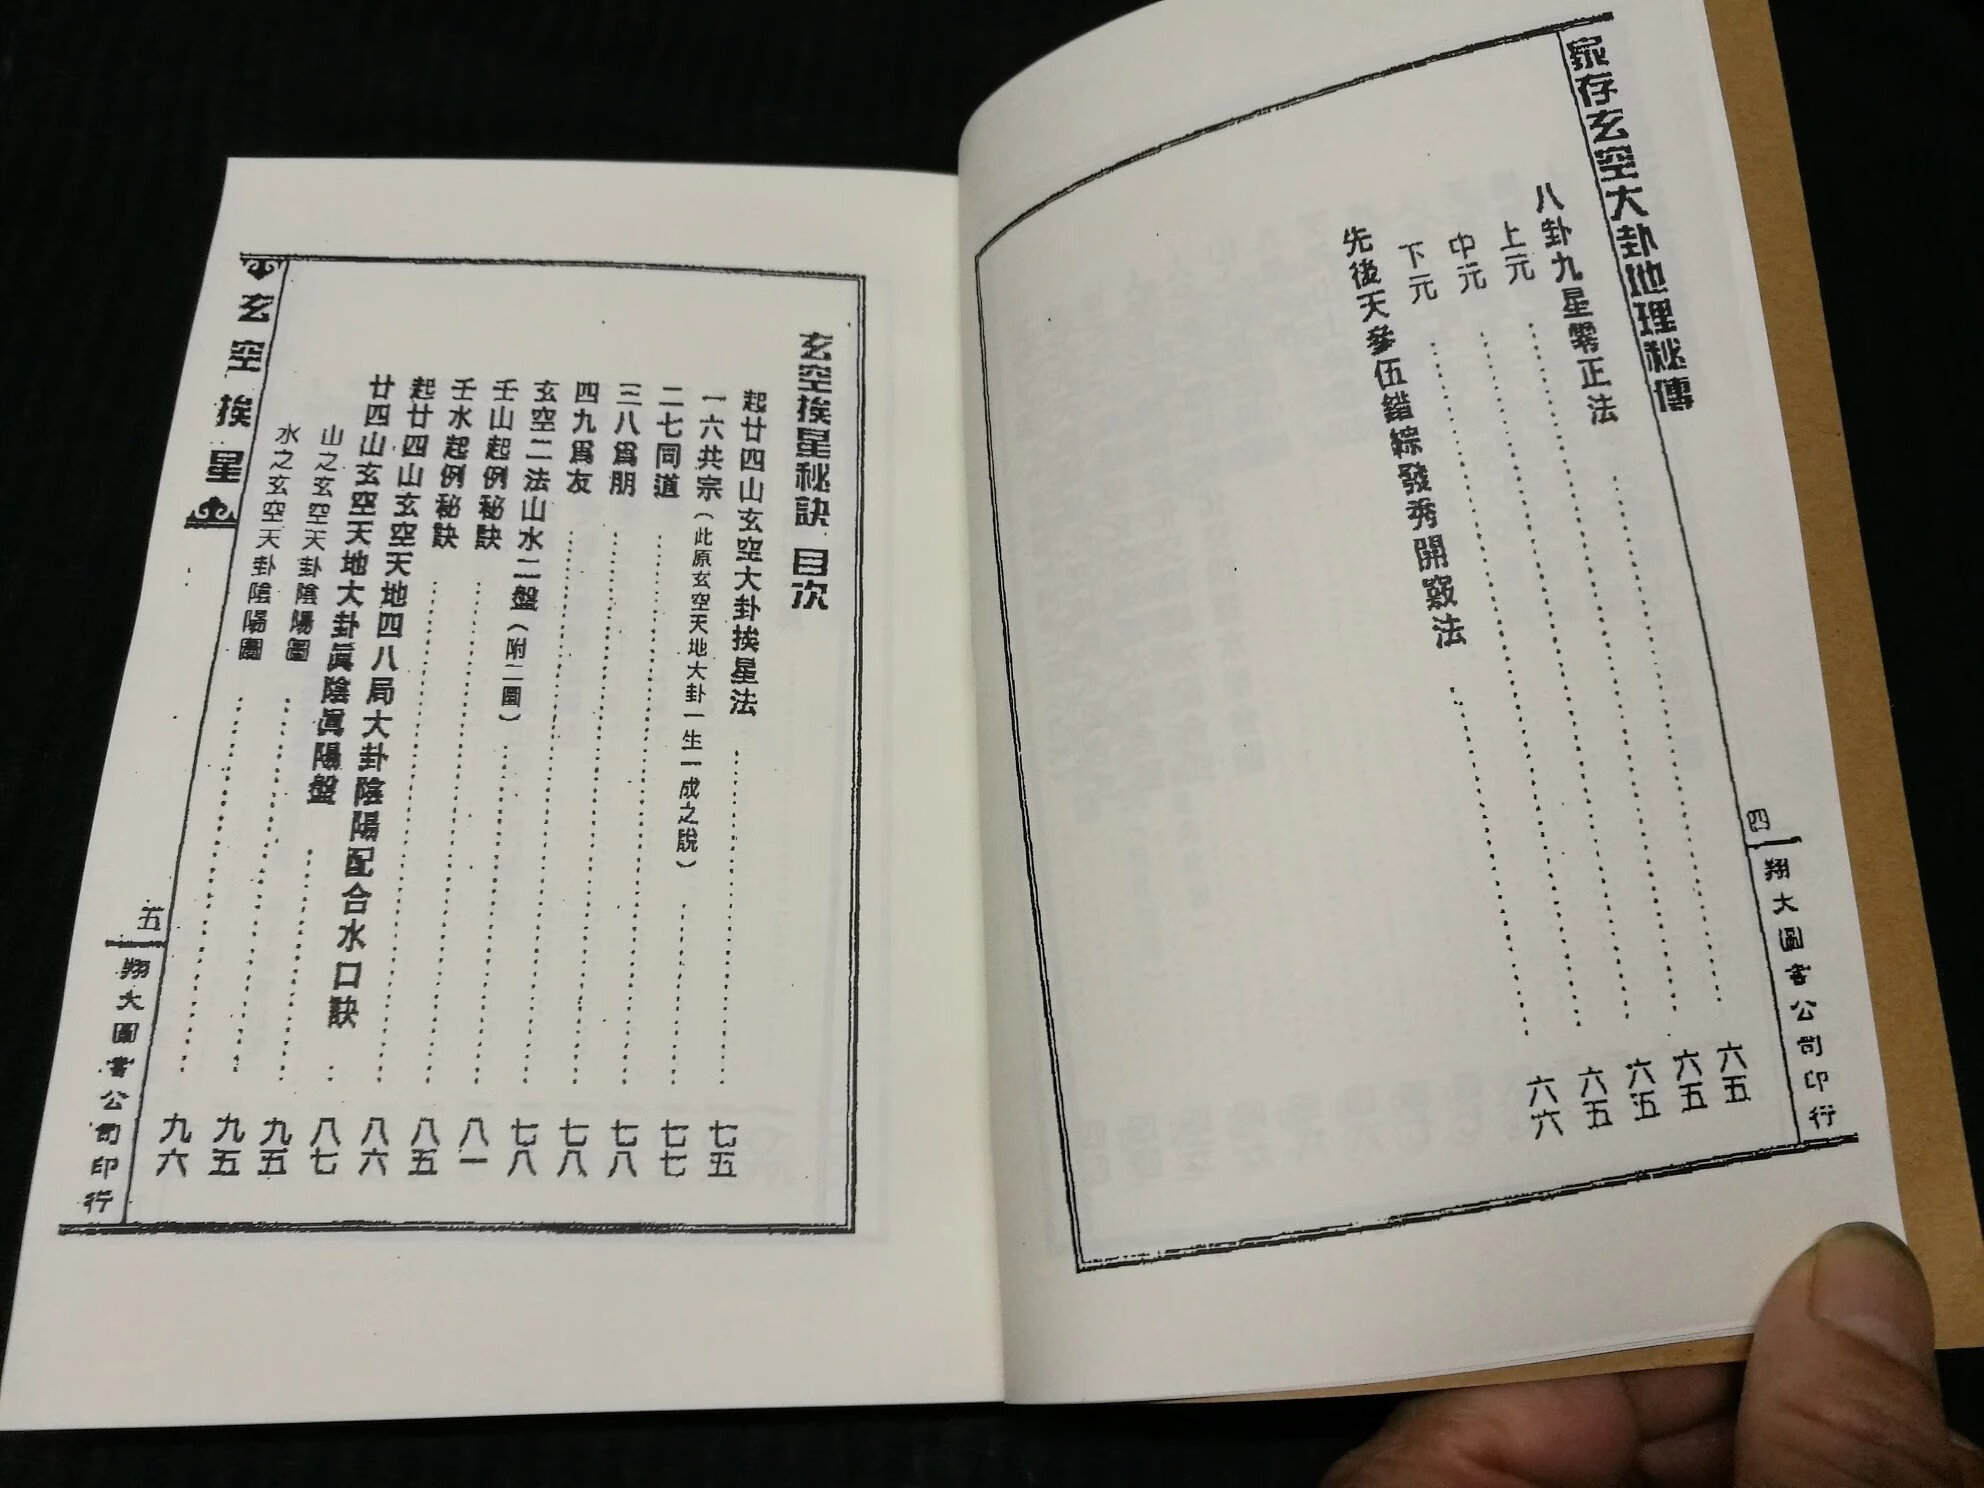 家存玄空大卦地理秘傳
八卦九星零正法……六五
上元……六五
中元……六五
下元……六五
先後天參伍錯綜發秀開竅法……六六
四
翔大圖書公司印行
玄空挨星秘訣 目次
起廿四山玄空大卦挨星法……七五
一六共宗（此原玄空天地大卦一生一成之說）……七七
二七同道……七八
三八爲朋……七八
四九爲友……七八
玄空二法山水二盤（附二圖）……八一
壬山起例秘訣……八五
壬水起例秘訣……八六
起廿四山玄空天地四八局大卦陰陽配合水口訣……八七
廿四山玄空天地大卦眞陰眞陽盤……九五
山之玄空天卦陰陽圖……九五
水之玄空天卦陰陽圖……九六
玄空挨星
五
翔大圖書公司印行